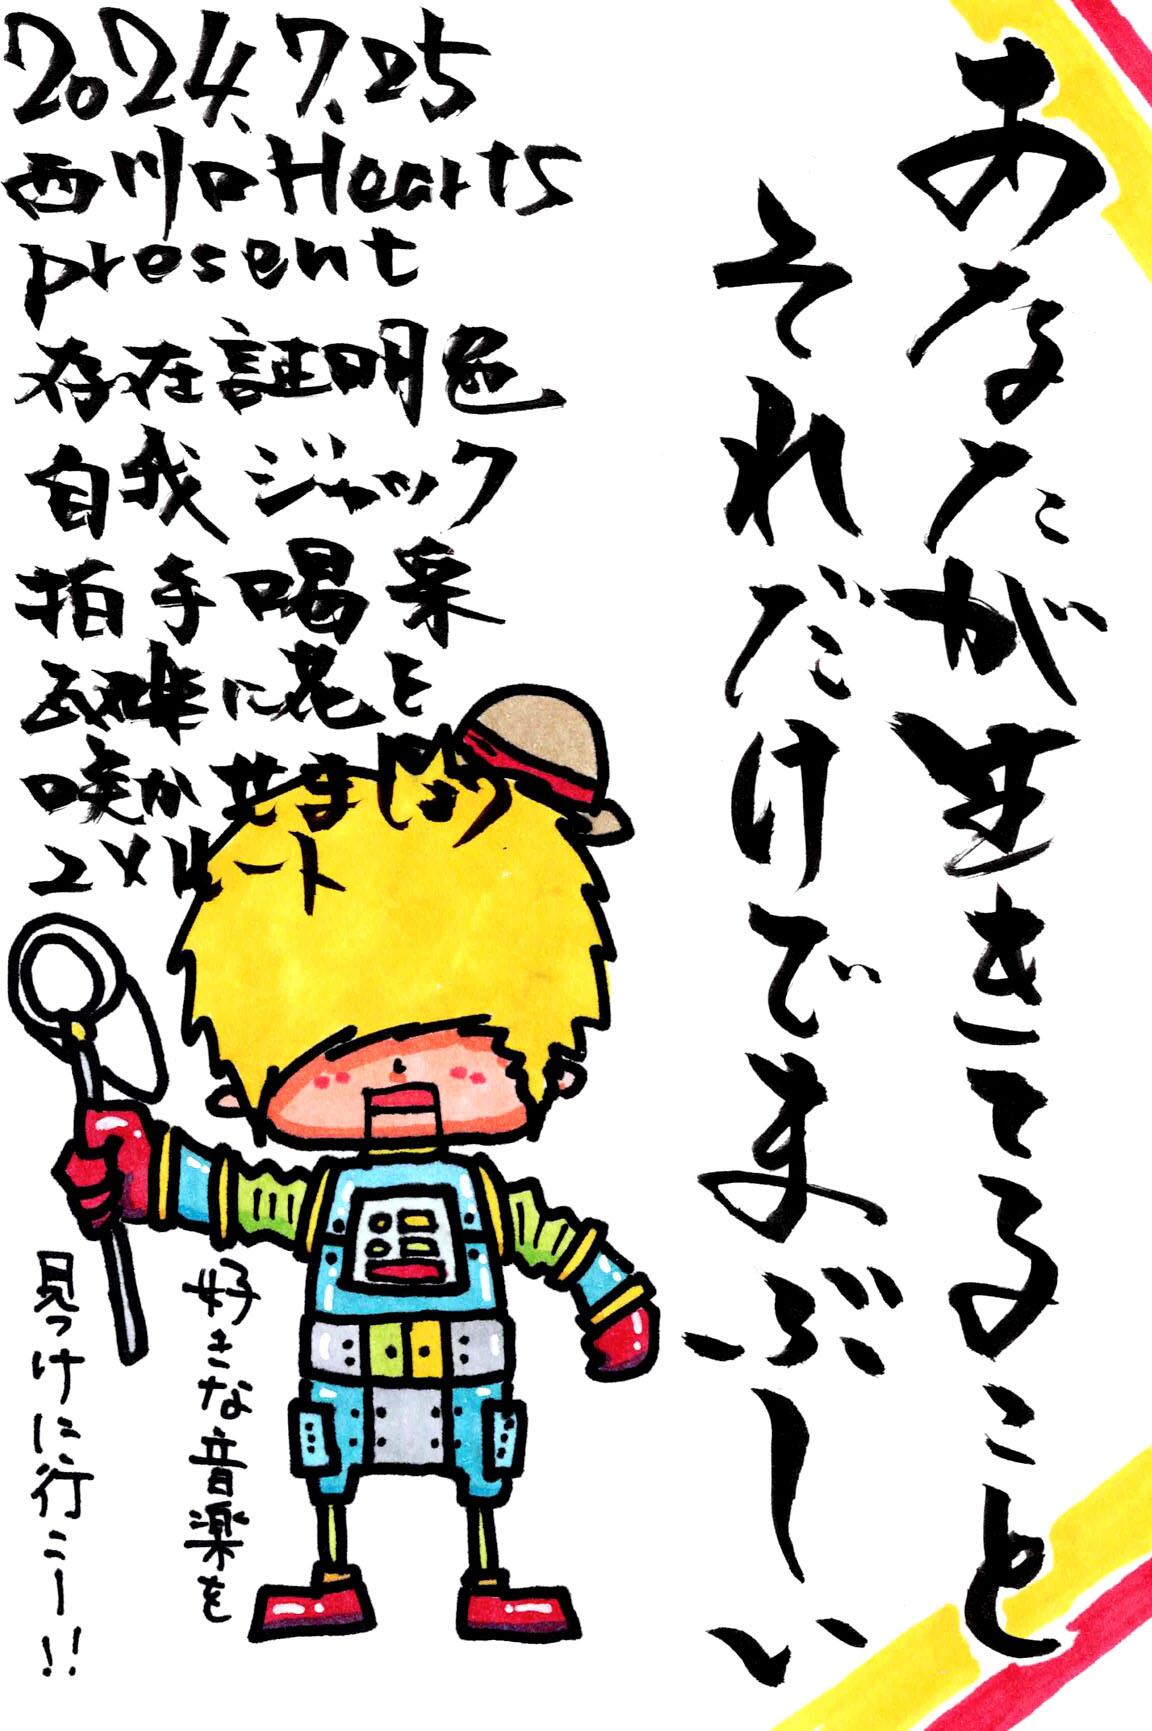 あなたが生きてること
それだけでまぶしい
2024.7.25
西川口Hearts
present
存在証明色
自我ジャック
拍手喝采
瓦礫に花を
咲かせましょう
2×4ート
好きな音楽を
見つけに行こー!!